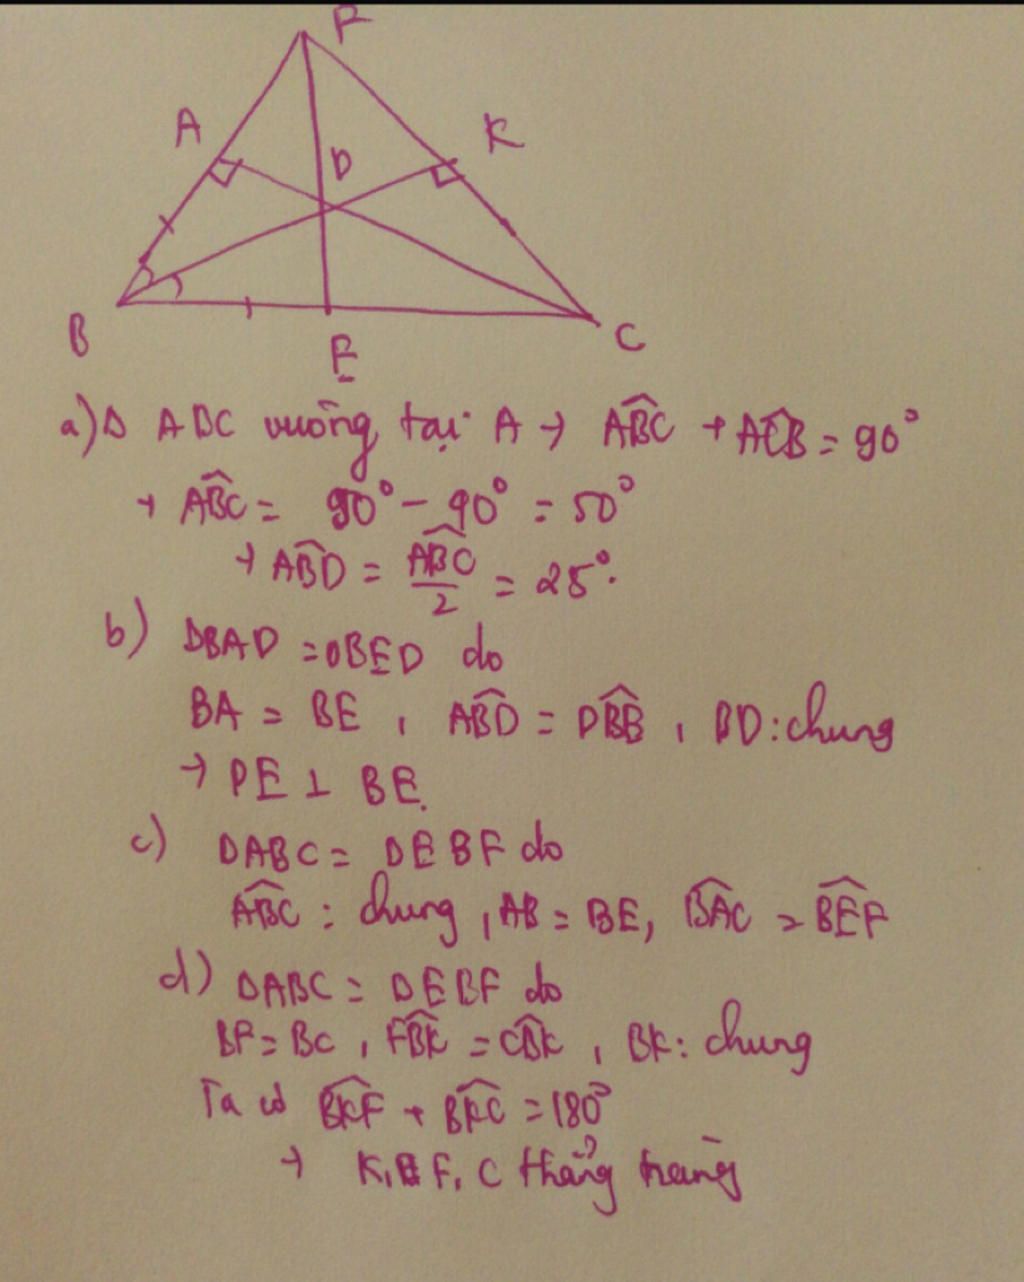 F
A
K
D
B
E
C
a) Δ ABC vuông tại A → ABC + ACB = 90°
→ ABC = 90° - 90° = 50°
→ ABD = ABC/2 = 25°.
b) ΔBAD = ΔBED do
BA = BE, ABD = DBE, BD: chung
→ DE ⊥ BE.
c) ΔABC = ΔEBF do
ABC: chung, AB = BE, BAC = BEF
d) ΔABC = ΔEBF do
BF = BC, FBK = CBK, BK: chung
Ta có BKF + BKC = 180°
→ K, F, C thẳng hàng